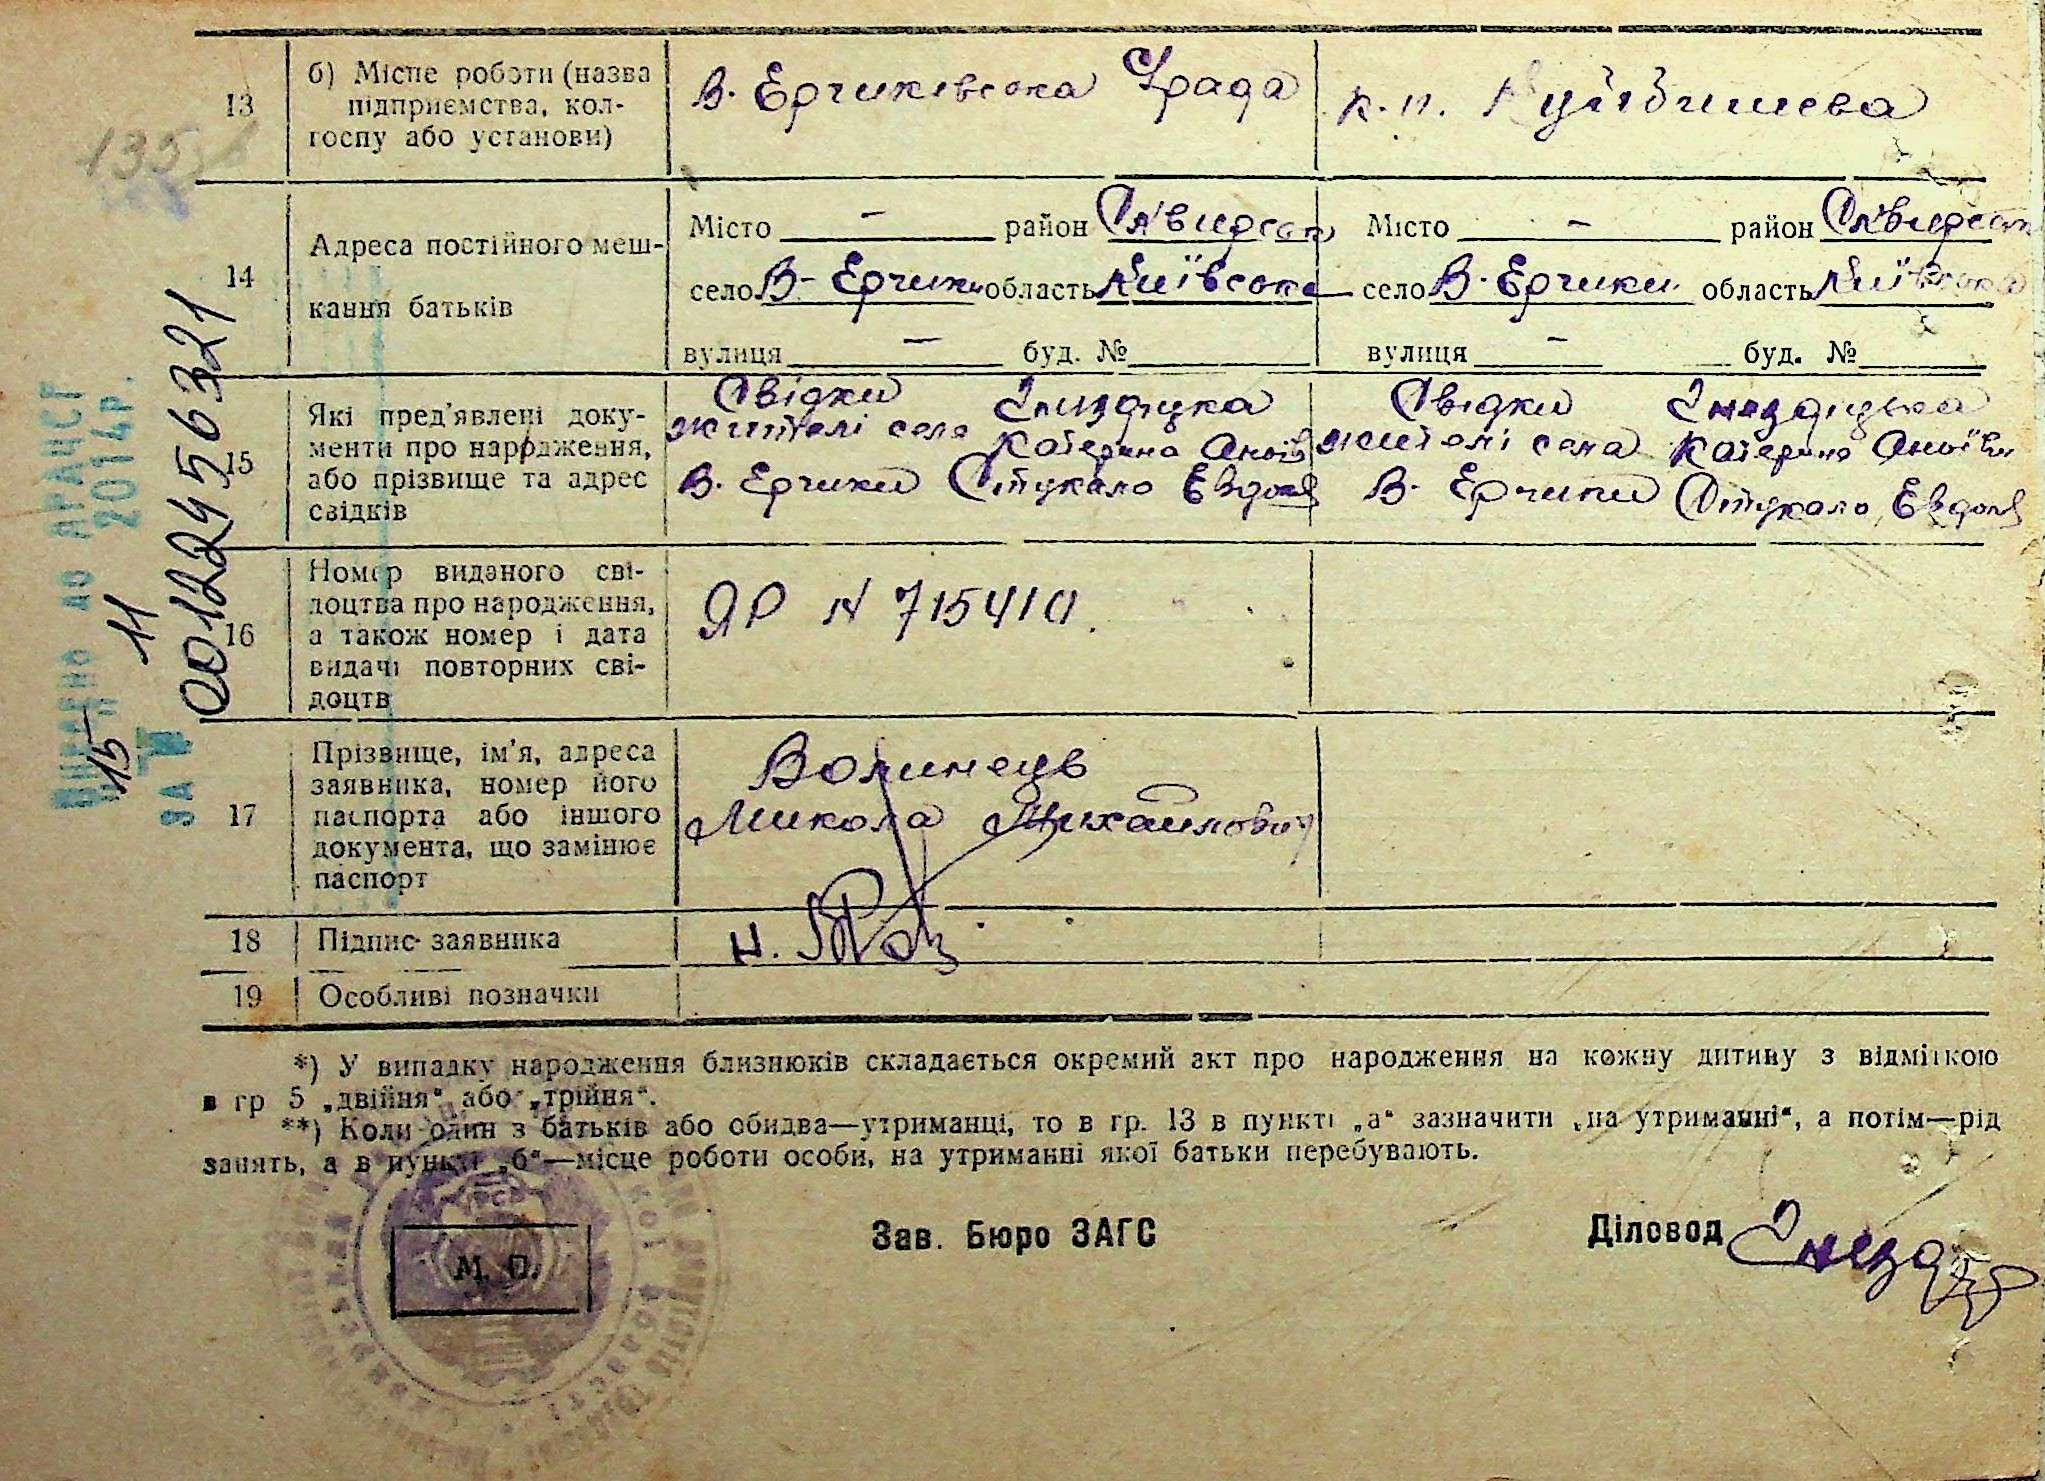 13
б) Місце роботи (назва
підприємства, кол-
госпу або установи)
В. Ерчиківська С/рада
к.п. Куйбишева
135
14
Адреса постійного меш-
кання батьків
Місто — район Сквирськ
село В-Ерчики область Київська
вулиця — буд. №
Місто — район Сквирськ
село В. Ерчики область Київська
вулиця — буд. №
15
Які пред’явлені доку-
менти про народження,
або прізвище та адрес
свідків
Свідки
жителі села Катерина
В. Ерчики Стукало Евдокія
Свідки
жителі села Катерина
В. Ерчики Стукало Евдокія
16
Номер виданого сві-
доцтва про народження,
а також номер і дата
видачі повторних сві-
доцтв
ЯР N 715410.
17
Прізвище, ім’я, адреса
заявника, номер його
паспорта або іншого
документа, що замінює
паспорт
Волинець
Микола Михайлович
18
Підпис заявника
19
Особливі позначки
*) У випадку народження близнюків складається окремий акт про народження на кожну дитину з відміткою
в гр 5 „двійня“ або „трійня“.
**) Коли один з батьків або обидва—утриманці, то в гр. 13 в пункті „а“ зазначити „на утриманні“, а потім—рід
занять, а в пункті „б“—місце роботи особи, на утриманні якої батьки перебувають.
М. П.
Зав. Бюро ЗАГС
Діловод
ВНЕСЕНО ДО ДРАЦСГ
15 11 2014р.
ЗА №
00122456321